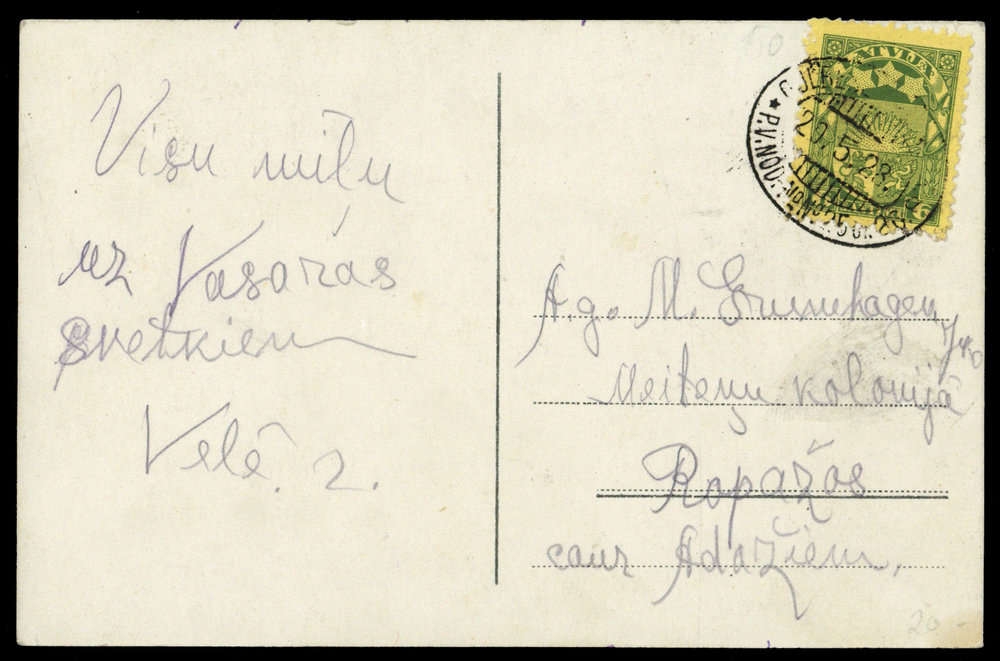 Visu mīļu
uz Vasaras
svetkiem
Velē. 2.
LATVIJA
6
20.5.28
P.V.NOD.
A.g. M. Grunuhagen
Meiteņu kolonijā
Ropažos
caur Adažiem.
20 -